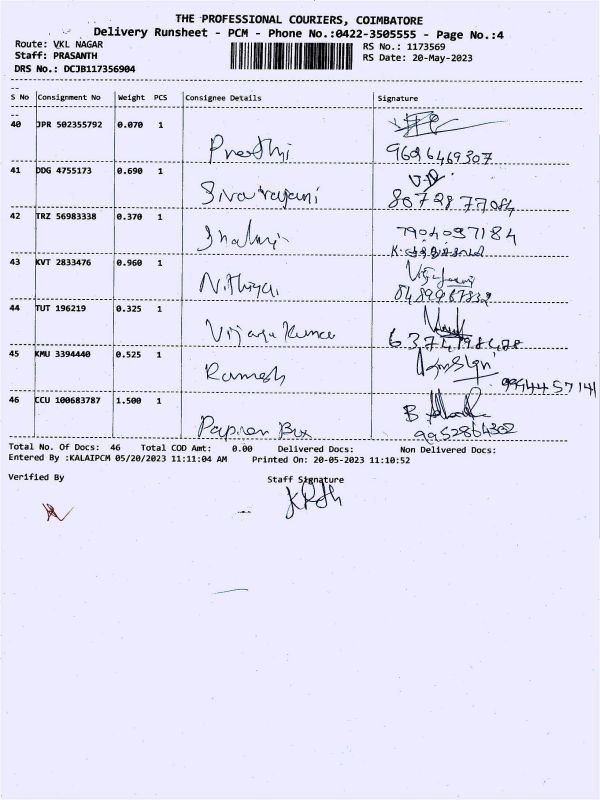 THE PROFESSIONAL COURIERS, COIMBATORE
Delivery Runsheet - PCM - Phone No.:0422-3505555 - Page No.:4
Route: VKL NAGAR
RS No.: 1173569
Staff: PRASANTH
RS Date: 20-May-2023
DRS No.: DCJB117356904
S No Consignment No Weight PCS Consignee Details Signature
40 JPR 502355792 0.070 1
Preethi 9626469307
41 DDG 4755173 0.690 1
Sivaranjani 8072877084
42 TRZ 56983338 0.370 1
7904097184
43 KVT 2833476 0.960 1
Nithiya
44 TUT 196219 0.325 1
Vijaya Kumar
45 KMU 3394440 0.525 1
Ramesh
46 CCU 100683787 1.500 1
Box 9952864302
Total No. Of Docs: 46 Total COD Amt: 0.00 Delivered Docs: Non Delivered Docs:
Entered By :KALAIPCM 05/20/2023 11:11:04 AM Printed On: 20-05-2023 11:10:52
Verified By Staff Signature